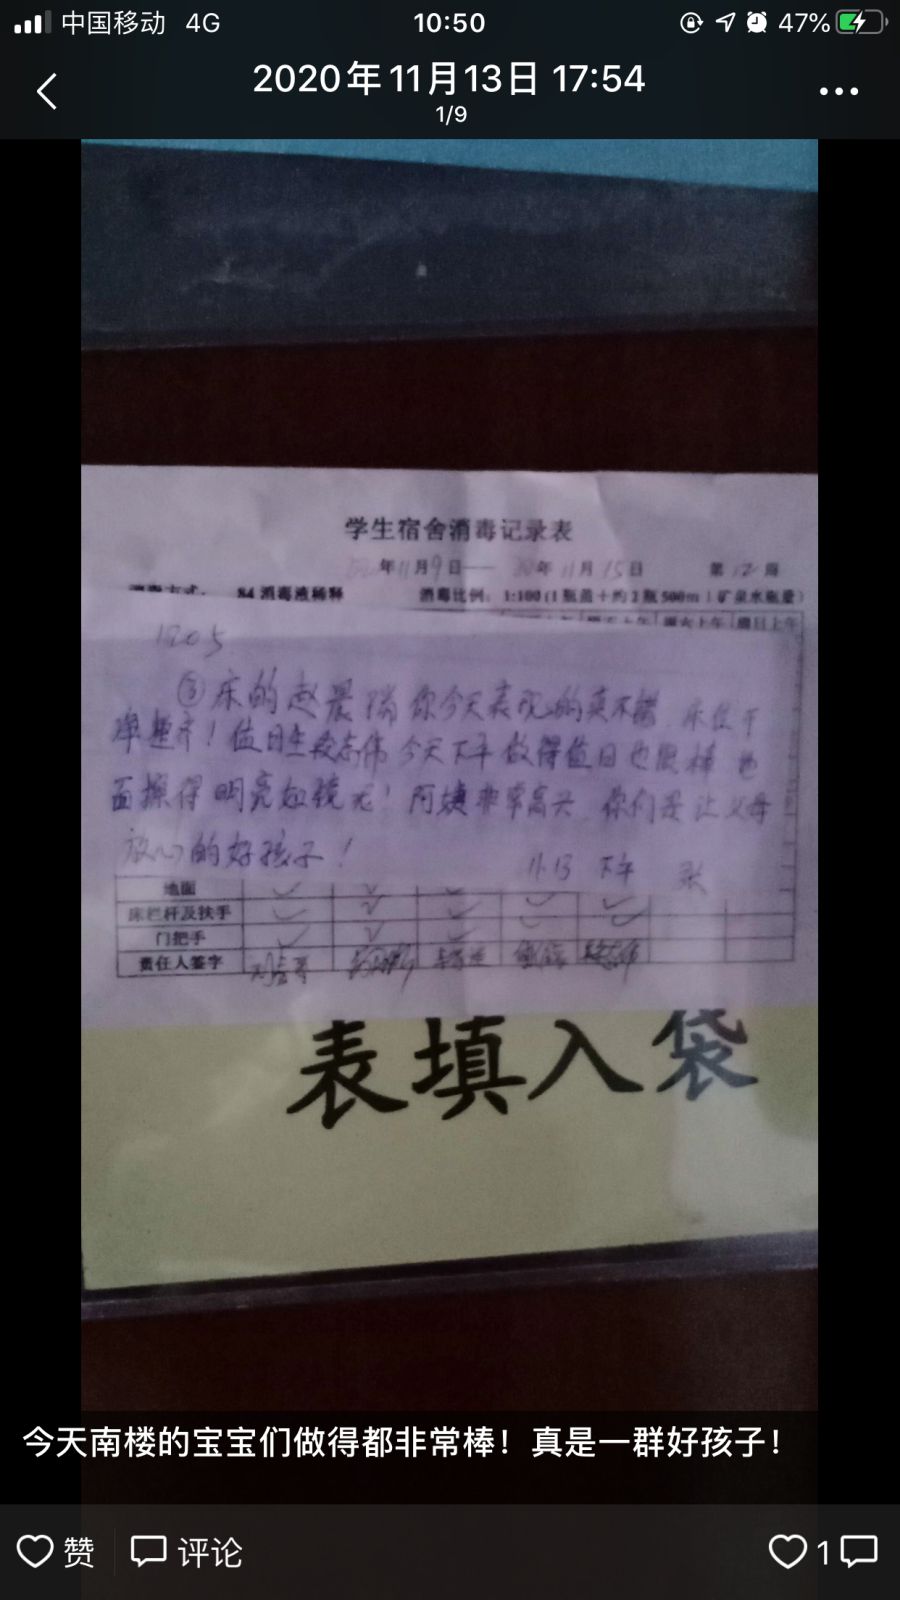 中国移动 4G 10:50 47%
2020年11月13日 17:54
1/9
学生宿舍消毒记录表
年11月9日—— 年11月15日 第12周
84消毒液稀释 消毒比例：1:100(1瓶盖+约2瓶500ml矿泉水瓶量)
周六上午 周日上午
1205
③床的赵晨瑞你今天表现的真不错 床位干
净整齐！值日生 志伟今天下午做得值日也很棒 地
面擦得明亮如镜 ！阿姨非常高兴 你们是让父母
放心的好孩子！
11.13 下午 张
地面
床栏杆及扶手
门把手
责任人签字
表填入袋
今天南楼的宝宝们做得都非常棒！真是一群好孩子！
赞 评论 1